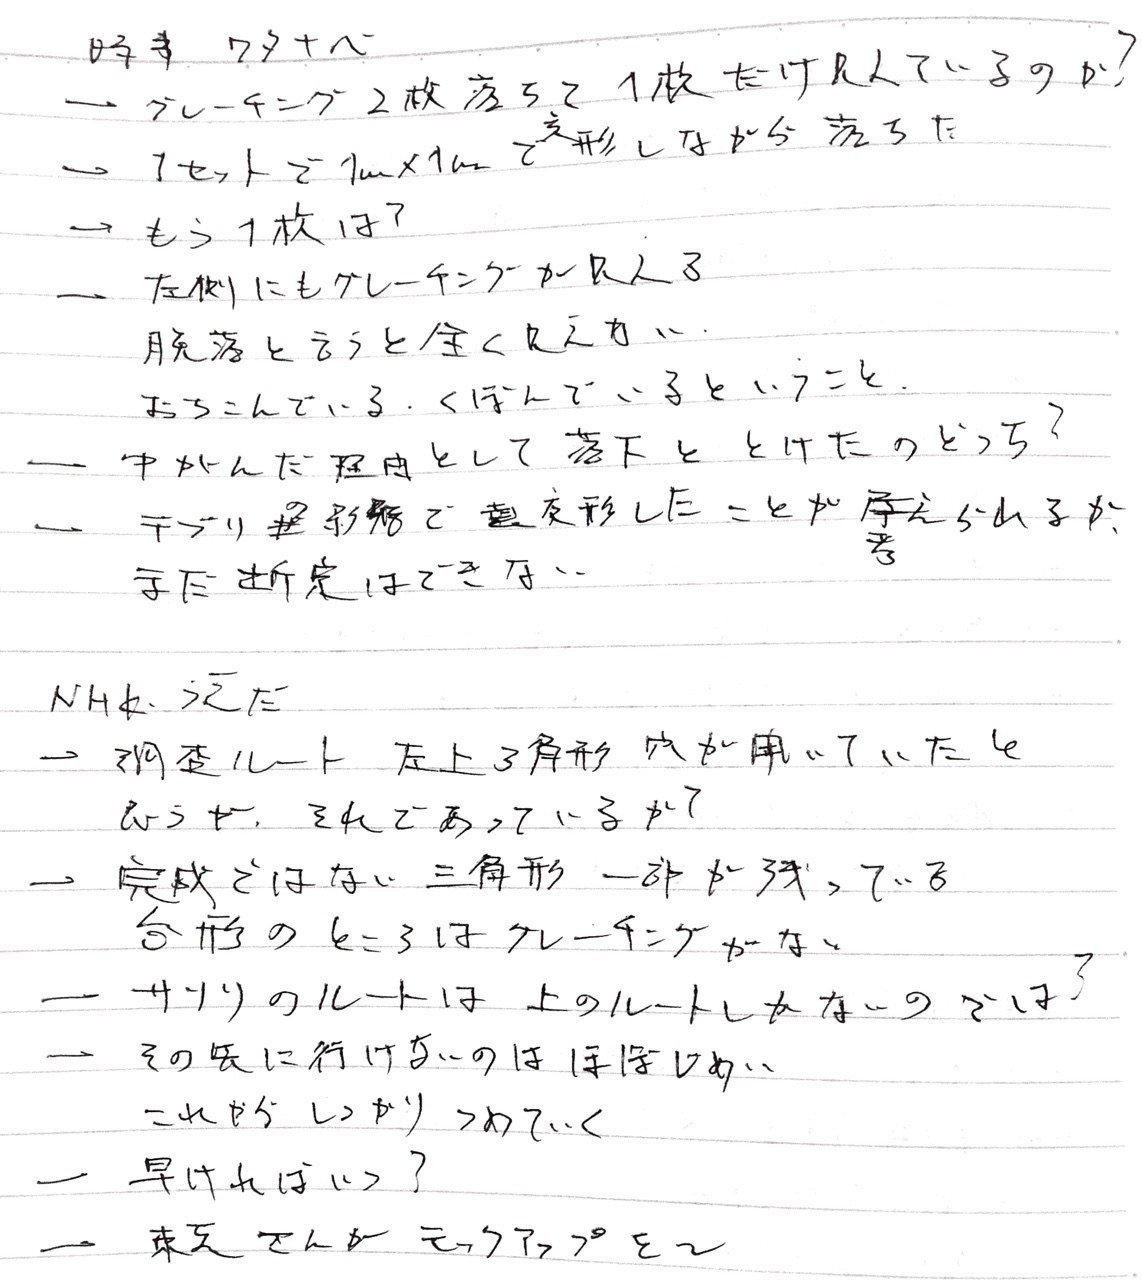 時事 ワタナベ
— グレーチング2枚落ちて1枚だけ見えているのか?
→ 1セットで1m×1mで変形しながら落ちた
→ もう1枚は?
— 左側にもグレーチングが見える
脱落と言うと全く見えない.
おちこんでいる.くぼんでいるということ.
— ゆがんだ理由として落下ととけたのどっち?
— デブリの影響で変形したことが考えられるが、
まだ断定はできない
NHK. うえだ
→ 調査ルート 左上3角形 穴が開いていたと
思うが、それであっているか?
→ 完成ではない 三角形 一部が残っている
台形のところはグレーチングがない
— サソリのルートは 上のルートしかないのでは?
— その先に行けないのはほぼ
これからしっかりつめていく
— 早ければいつ?
→ 東芝さんが モックアップを